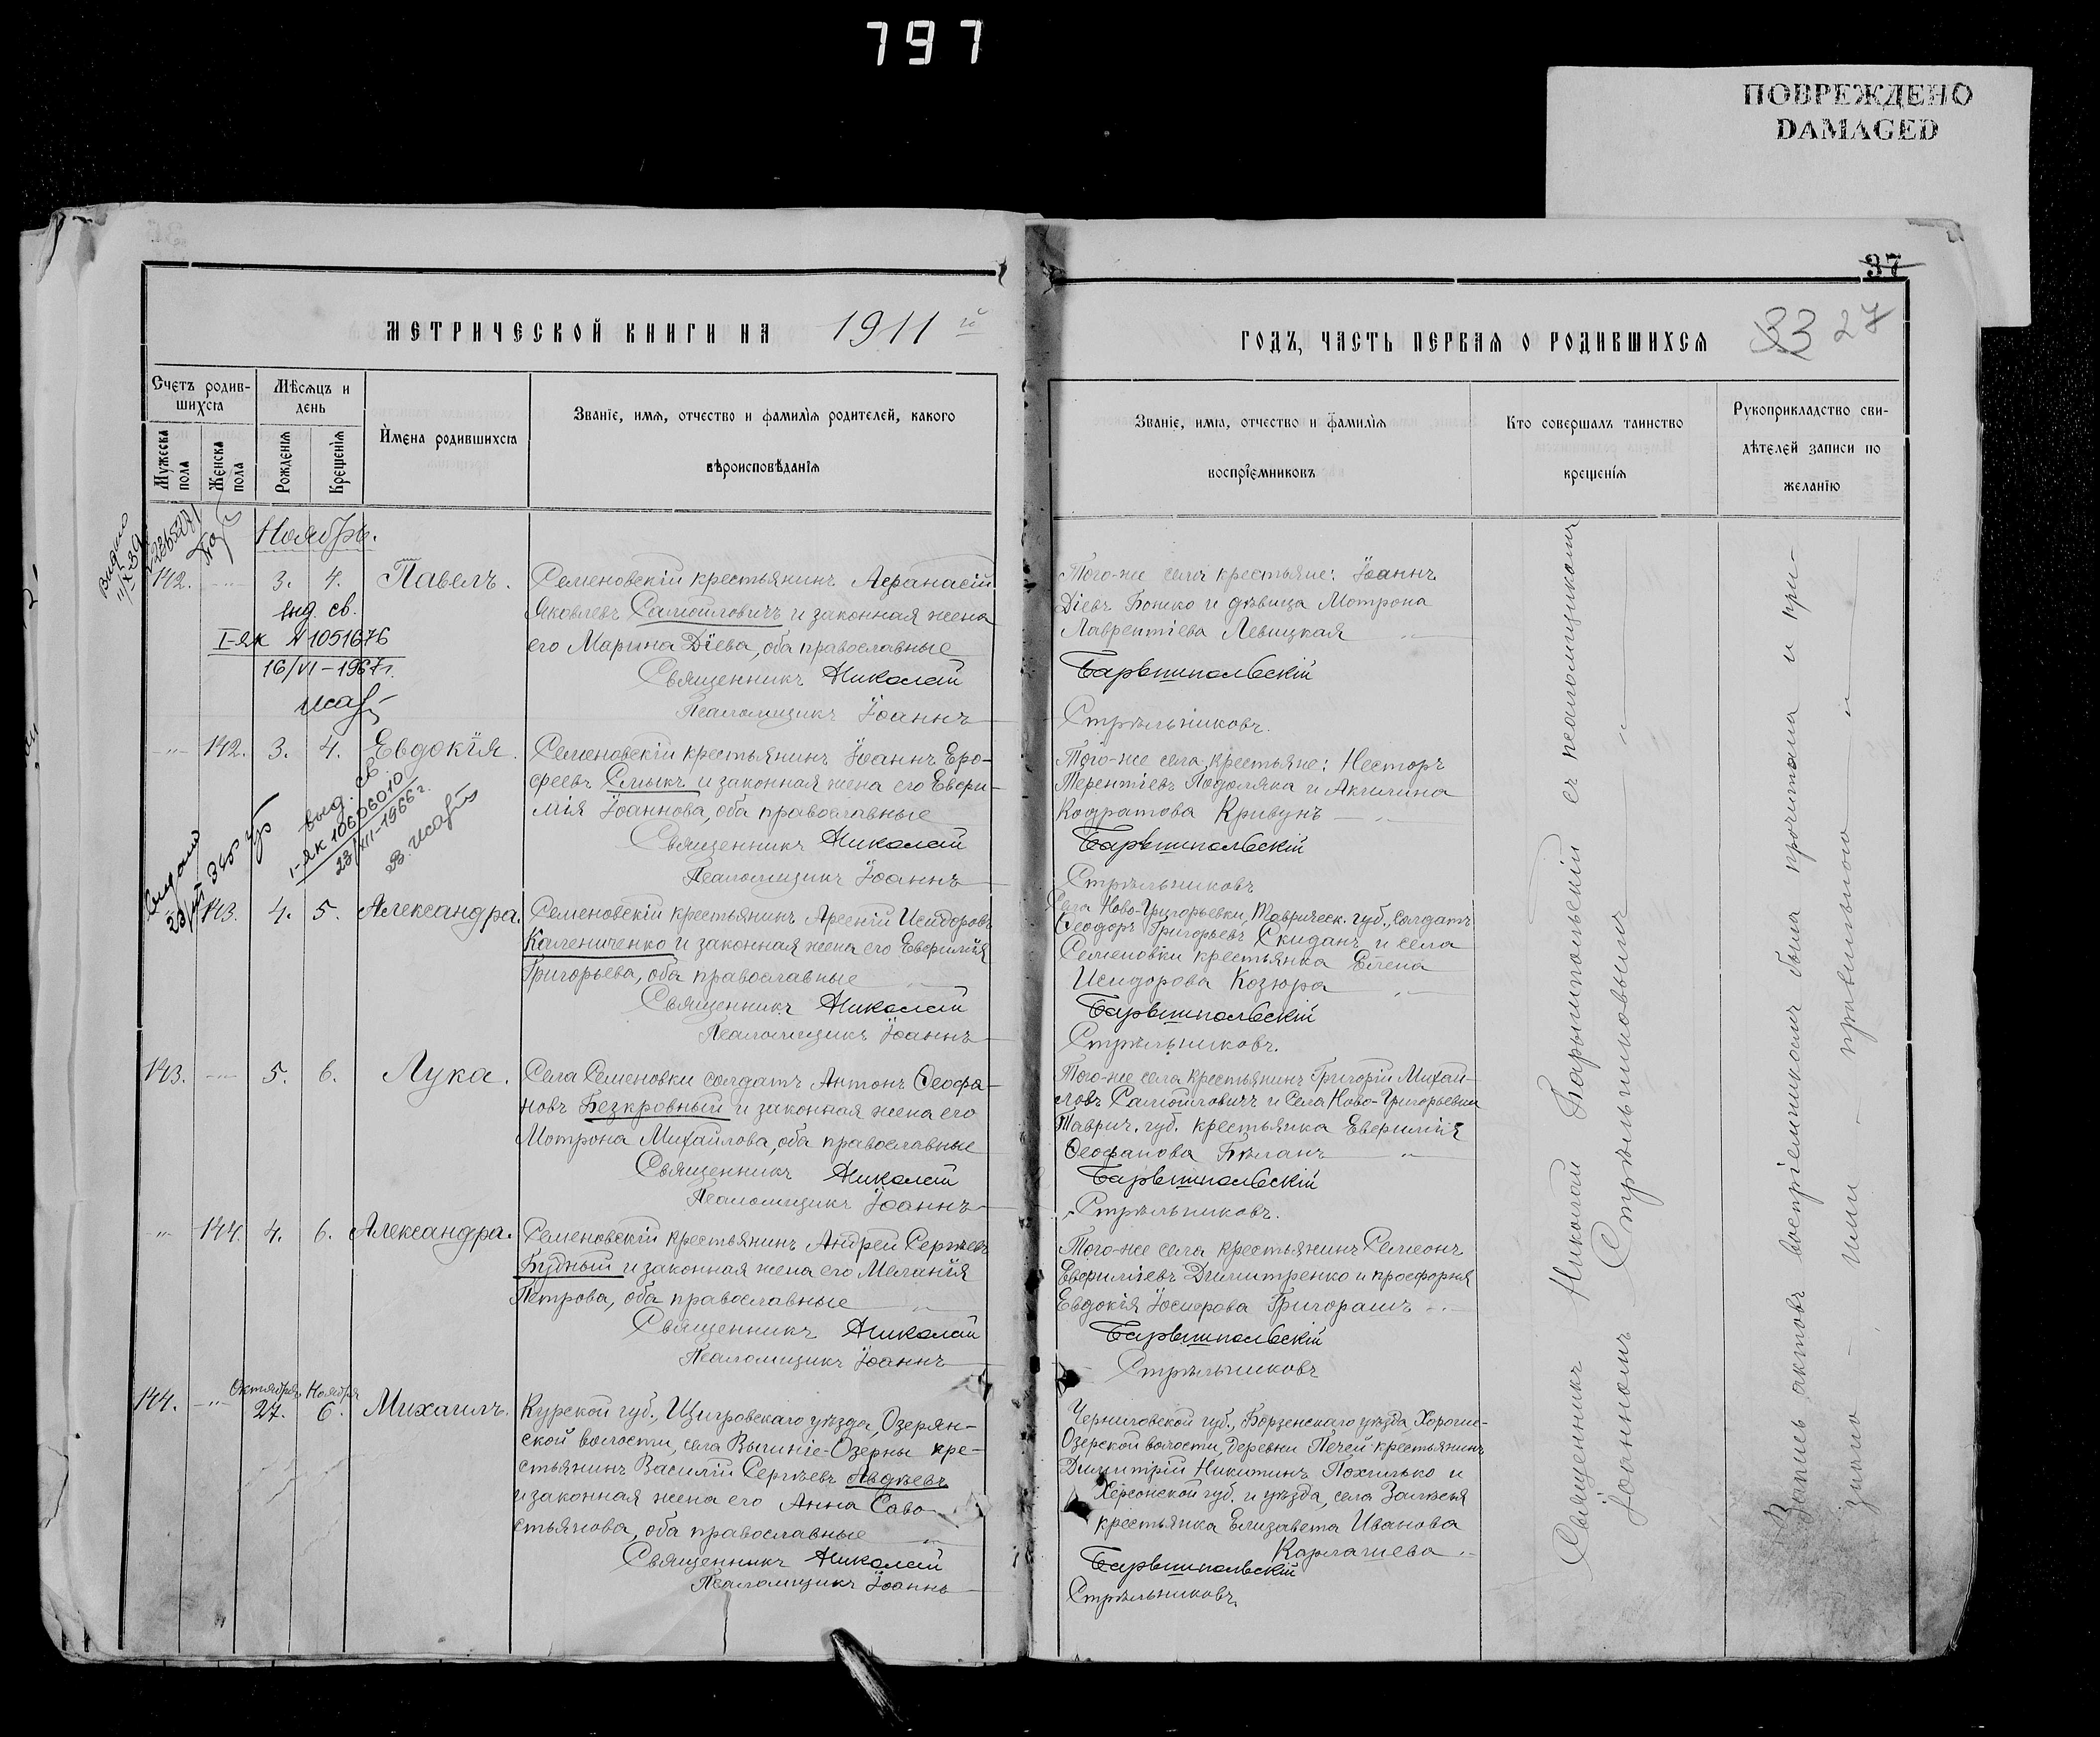 797
ПОВРЕЖДЕНО
DAMAGED
37
МЕТРИЧЕСКОЙ КНИГИ НА 1911 й
ГОДЪ, ЧАСТЬ ПЕРВАЯ О РОДИВШИХСЯ
33 27
Счетъ родив-
шихся
Мѣсяцъ и
день
Имена родившихся
Званіе, имя, отчество и фамилія родителей, какого
вѣроисповѣданія
Мужеска
пола
Женска
пола
Рожденія
Крещенія
Званіе, имя, отчество и фамилія
воспріемниковъ
Кто совершалъ таинство
крещенія
Рукоприкладство сви-
дѣтелей записи по
желанію
Ноябрь.
142. 3. 4. Павелъ.
Семеновскій крестьянинъ Афанасій
Яковлевъ Самойловичъ и законная жена
его Марина Діева, оба православные
Священникъ Николай
Псаломщикъ Іоаннъ
выд. св.
I-ЯК № 1051676
16/VI-1967г.
Того-же села крестьяне: Іоаннъ
Діевъ Бошко и дѣвица Мотрона
Лаврентіева Левицкая
Барышпольскій
Стрѣльниковъ.
142. 3. 4. Евдокія.
Семеновскій крестьянинъ Іоаннъ Еро-
феевъ Смыкъ и законная жена его Евфи-
мія Іоаннова, оба православные
Священникъ Николай
Псаломщикъ Іоаннъ
выд. св
I-ЯК 1060601
23/XII-1966г.
Того-же села крестьяне: Несторъ
Терентіевъ Подоляка и Акилина
Кодратова Кривунъ
Барышпольскій
Стрѣльниковъ
143. 4. 5. Александра.
Семеновскій крестьянинъ Арсеній Исидоровъ
Калениченко и законная жена его Евфимія
Григорьева, оба православные
Священникъ Николай
Псаломщикъ Іоаннъ
Села Ново-Григорьевки, Таврическ. губ., солдатъ
Ѳеодоръ Григорьевъ Скиданъ и села
Семеновки крестьянка Елена
Исидорова Козюра
Барышпольскій
Стрѣльниковъ.
143. 5. 6. Лука.
Села Семеновки солдатъ Антонъ Ѳеофа-
новъ Безкровный и законная жена его
Мотрона Михайлова, оба православные
Священникъ Николай
Псаломщикъ Іоаннъ
Того-же села крестьянинъ Григорій Михай-
ловъ Самойловичъ и села Ново-Григорьевки
Таврич. губ. крестьянка Евфимія
Ѳеофанова Бѣланъ
Барышпольскій
Стрѣльниковъ.
144. 4. 6. Александра.
Семеновскій крестьянинъ Андрей Сергѣевъ
Будный и законная жена его Меланія
Петрова, оба православные
Священникъ Николай
Псаломщикъ Іоаннъ
Того-же села крестьянинъ Семеонъ
Евфиміевъ Димитренко и просфорня
Евдокія Іосифова Григорашъ
Барышпольскій
Стрѣльниковъ
Октября Ноября
144. 27. 6. Михаилъ.
Курской губ., Щигровскаго уѣзда, Озерян-
ской волости, села Вышніе-Озерны кре-
стьянинъ Василій Сергѣевъ Авдѣевъ
и законная жена его Анна Сево-
стьянова, оба православные
Священникъ Николай
Псаломщикъ Іоаннъ
Черниговской губ., Борзенскаго уѣзда, Хороше-
Озерской волости, деревни Печей крестьянинъ
Димитрій Никитинъ Похилько и
Херсонской губ. и уѣзда, села Залѣсья
крестьянка Елизавета Иванова
Карпашева
Барышпольскій
Стрѣльниковъ.
Священникъ Николай Барышпольскій съ псаломщикомъ
Іоанномъ Стрѣльниковымъ
Запись актовъ воспріемникомъ была прочитана и при-
знана ими правильною